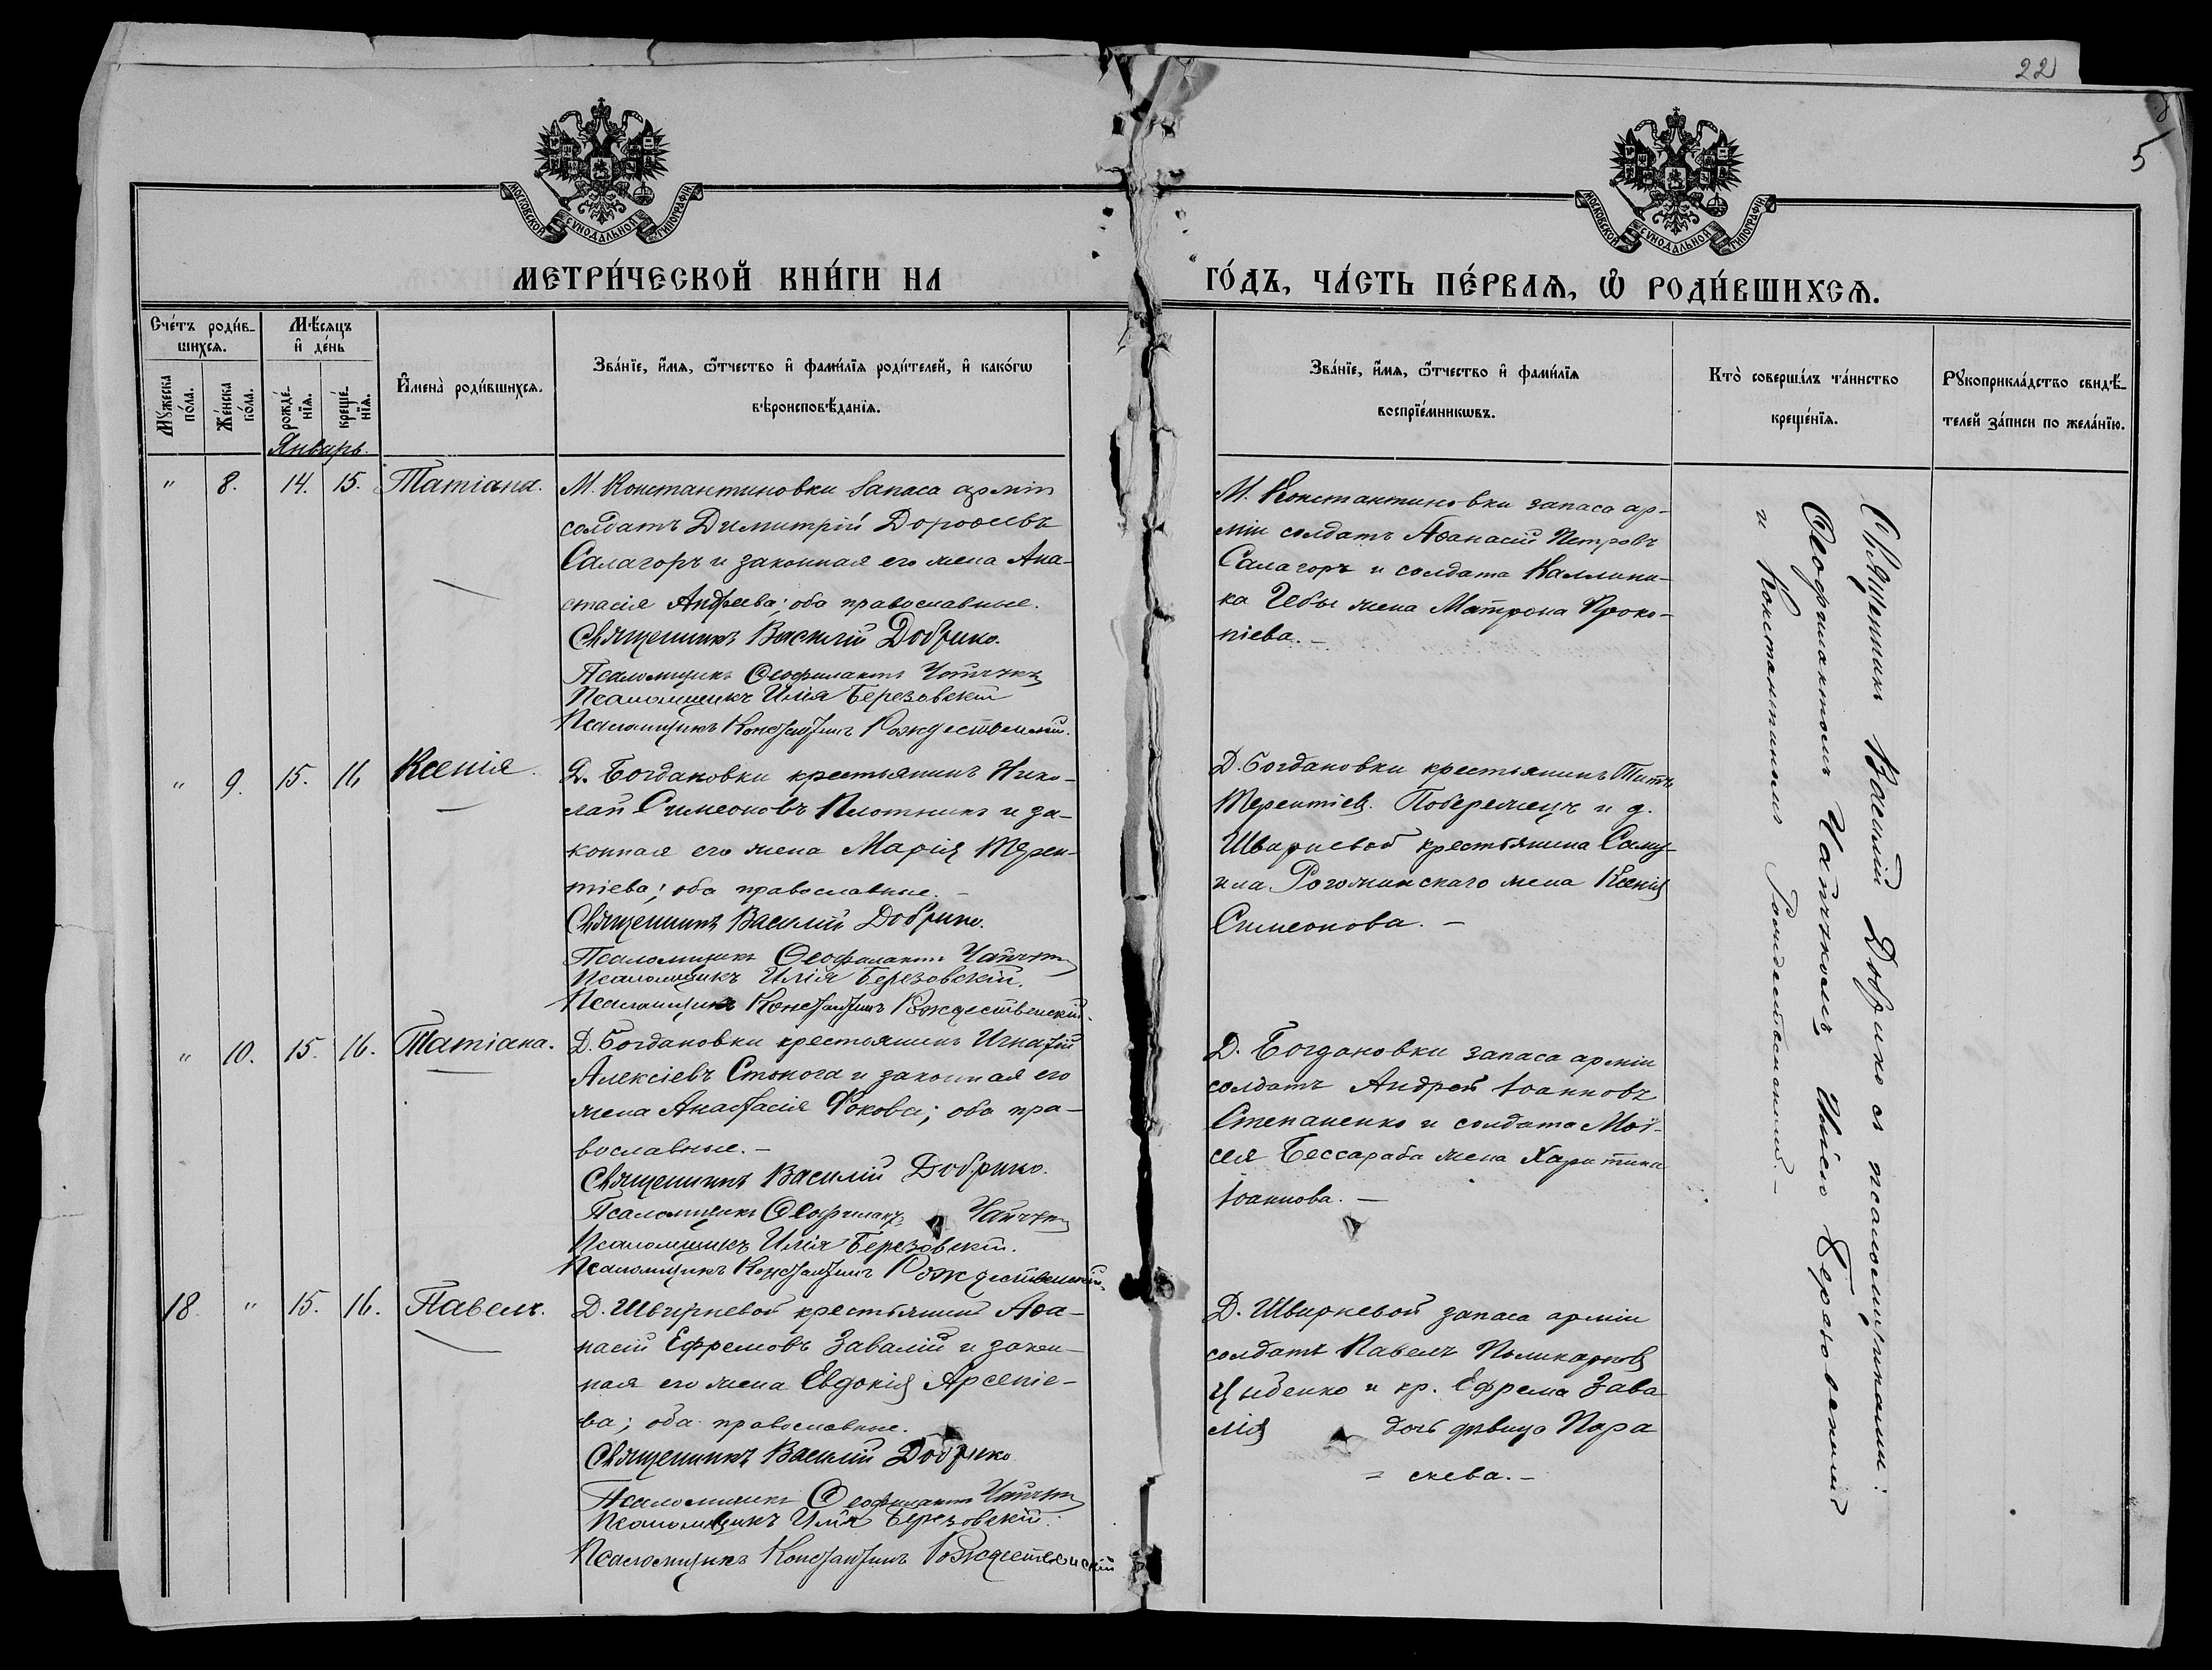 22
5
МОСКОВСКОЙ СУНОДАЛЬНОЙ ТИПОГРАФІИ
МОСКОВСКОЙ СУНОДАЛЬНОЙ ТИПОГРАФІИ
МЕТРИ́ЧЕСКОЙ КНИ́ГИ НА
ГО́ДЪ, ЧА́СТЬ ПЕ́РВАѦ, Ѡ РОДИ́ВШИХСѦ.
Сче́тъ роди́в-
шихсѧ.
Мѣ́сѧцъ
и҆ де́нь
Мꙋ́жеска
по́ла.
Же́нска
по́ла.
рожде́-
нїѧ.
креще́-
нїѧ.
И҆мена̀ роди́вшихсѧ.
Зва́нїе, и҆́мѧ, ѻ҆́тчество и҆ фами́лїѧ роди́телей, и҆ како́гѡ
вѣроисповѣ́данїѧ.
Зва́нїе, и҆́мѧ, ѻ҆́тчество и҆ фами́лїѧ
воспрїе́мникѡвъ.
Кто̀ соверша́лъ та́инство
креще́нїѧ.
Рꙋкоприкла́дство свидѣ́-
телей за́писи по жела́нїю.
Январь.
" 8. 14. 15. Татіана.
М. Константиновки запаса арміи
солдатъ Димитрій Дороѳеевъ
Салагоръ и законная его жена Ана-
стасія Андреева; оба православные.
Священникъ Василій Добрико.
Псаломщикъ Ѳеофилактъ Чайчукъ
Псаломщикъ Илія Березовскій
Псаломщикъ Константинъ Рождественскій.
М. Константиновки запаса ар-
міи солдатъ Аѳанасій Петровъ
Салагоръ и солдата Каллини-
ка Чебы жена Матрона Проко-
піева. –
" 9. 15. 16 Ксенія.
Д. Богдановки крестьянинъ Нико-
лай Симеоновъ Плотникъ и за-
конная его жена Марія Терен-
тіева; оба православные. –
Священникъ Василій Добрико.
Псаломщикъ Ѳеофилактъ Чайчукъ
Псаломщикъ Илія Березовскій.
Псаломщикъ Константинъ Рождественскій.
Д. Богдановки крестьянинъ Титъ
Терентіев. Побережецъ и д.
Швариевой крестьянина Саму-
ила Рогожинскаго жена Ксенія
Симеонова. –
" 10. 15. 16. Татіана.
Д. Богдановки крестьянинъ Игнатій
Алексіевъ Стонога и законная его
жена Анастасія Фокова; оба пра-
вославные. –
Священникъ Василій Добрико.
Псаломщикъ Ѳеофилактъ Чайчукъ
Псаломщикъ Илія Березовскій.
Псаломщикъ Константинъ Рождественскій.
Д. Богдановки запаса арміи
солдатъ Андрей Іоанновъ
Степаненко и солдата Мої-
сея Бессараба жена Харитина
Іоаннова. –
18. " 15. 16. Павелъ.
Д. Швирневой крестьянинъ Аѳа-
насій Ефремовъ Завалій и закон-
ная его жена Евдокія Арсеніе-
ва; оба православные.
Священникъ Василій Добрико
Псаломщикъ Ѳеофилактъ Чайчукъ
Псаломщикъ Илія Березовскій.
Псаломщикъ Константинъ Рождественскій
Д. Швирневой запаса арміи
солдатъ Павелъ Поликарповъ
Цибенко и кр. Ефрема Зава
лія дочь дѣвица Пара
= скева. –
Священникъ Василій Добрико съ псаломщиками:
Ѳеофилактомъ Чайчукомъ, Иліею Березовскимъ
и Константиномъ Рождественскимъ. –